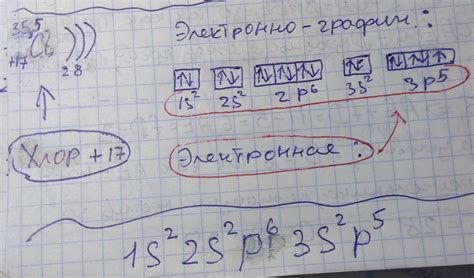 35,5 Электронно-графич.:
+17 Cl ))) 2 8
↑↓ ↑↓ ↑↓ ↑↓ ↑↓ ↑↓ ↑↓ ↑↓ ↑
1s² 2s² 2p⁶ 3s² 3p⁵
Хлор +17
Электронная:
1s²2s²p⁶3s²p⁵